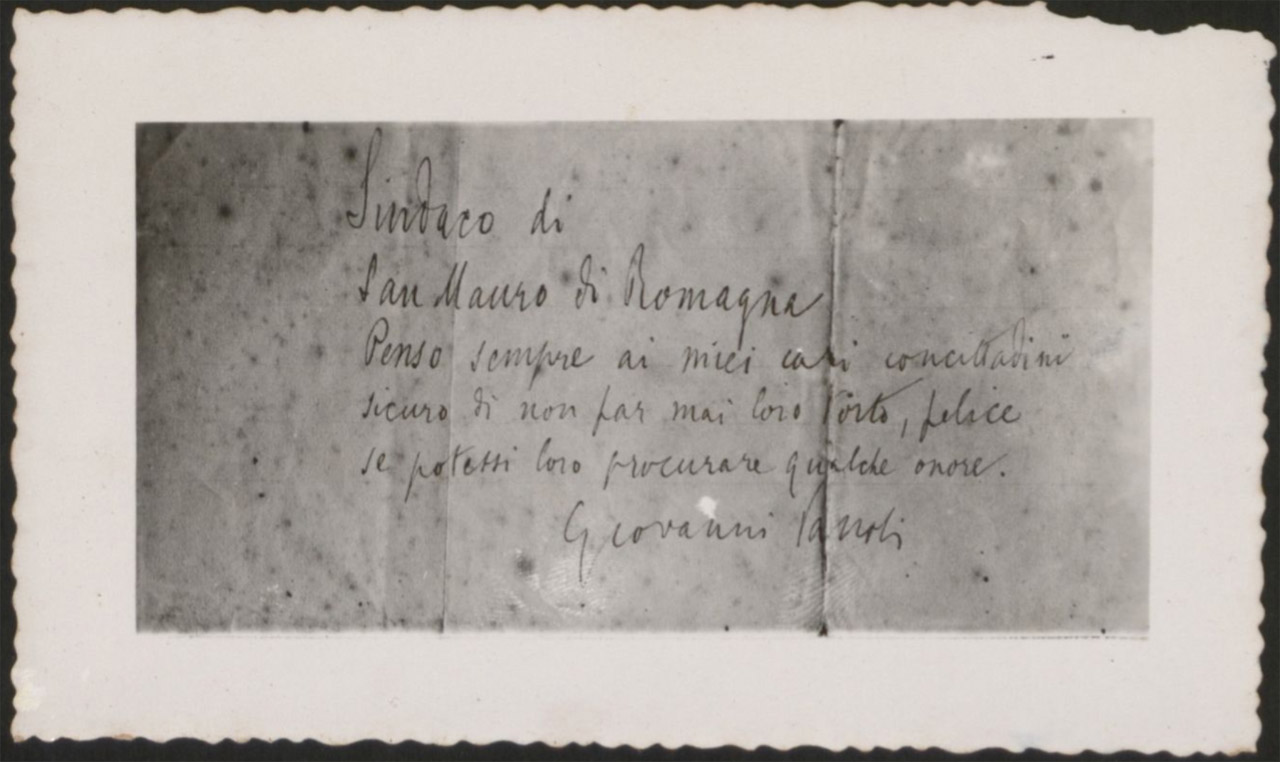 Sindaco di
San Mauro di Romagna
Penso sempre ai miei cari concittadini
sicuro di non far mai loro torto, felice
se potessi loro procurare qualche onore.
Giovanni Pascoli